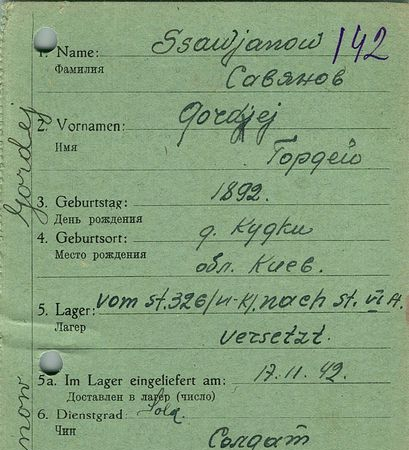 1. Name: Ssawjanow 142
Фамилия Савянов
2. Vornamen: Gordjej
Имя Гордей
3. Geburtstag: 1892.
День рождения
4. Geburtsort: д. Кудки
Место рождения обл. Киев.
5. Lager: vom St. 326/VI-K/, nach St. VI A.
Лагерь versetzt.
5a. Im Lager eingeliefert am: 17.11.42.
Доставлен в лагерь (число)
6. Dienstgrad: Sold.
Чин Солдат
Gordej
now